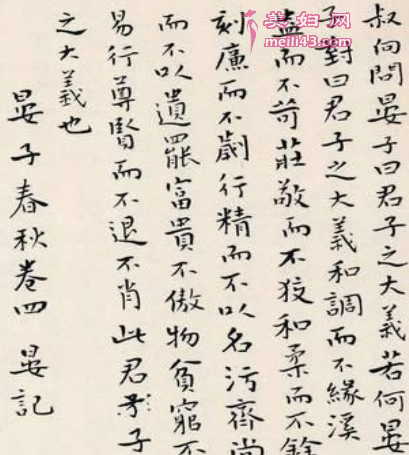 美妇网
meili43.com
叔向問晏子曰君子之大義若何晏
子對曰君子之大義和調而不緣溪
盎而不苛莊敬而不狡和柔而不銓
刻廉而不劌行精而不以名污齊尚
而不以遺罷富貴不傲物貧窮不
易行尊賢而不退不肖此君子
之大義也
晏子春秋卷四 晏記